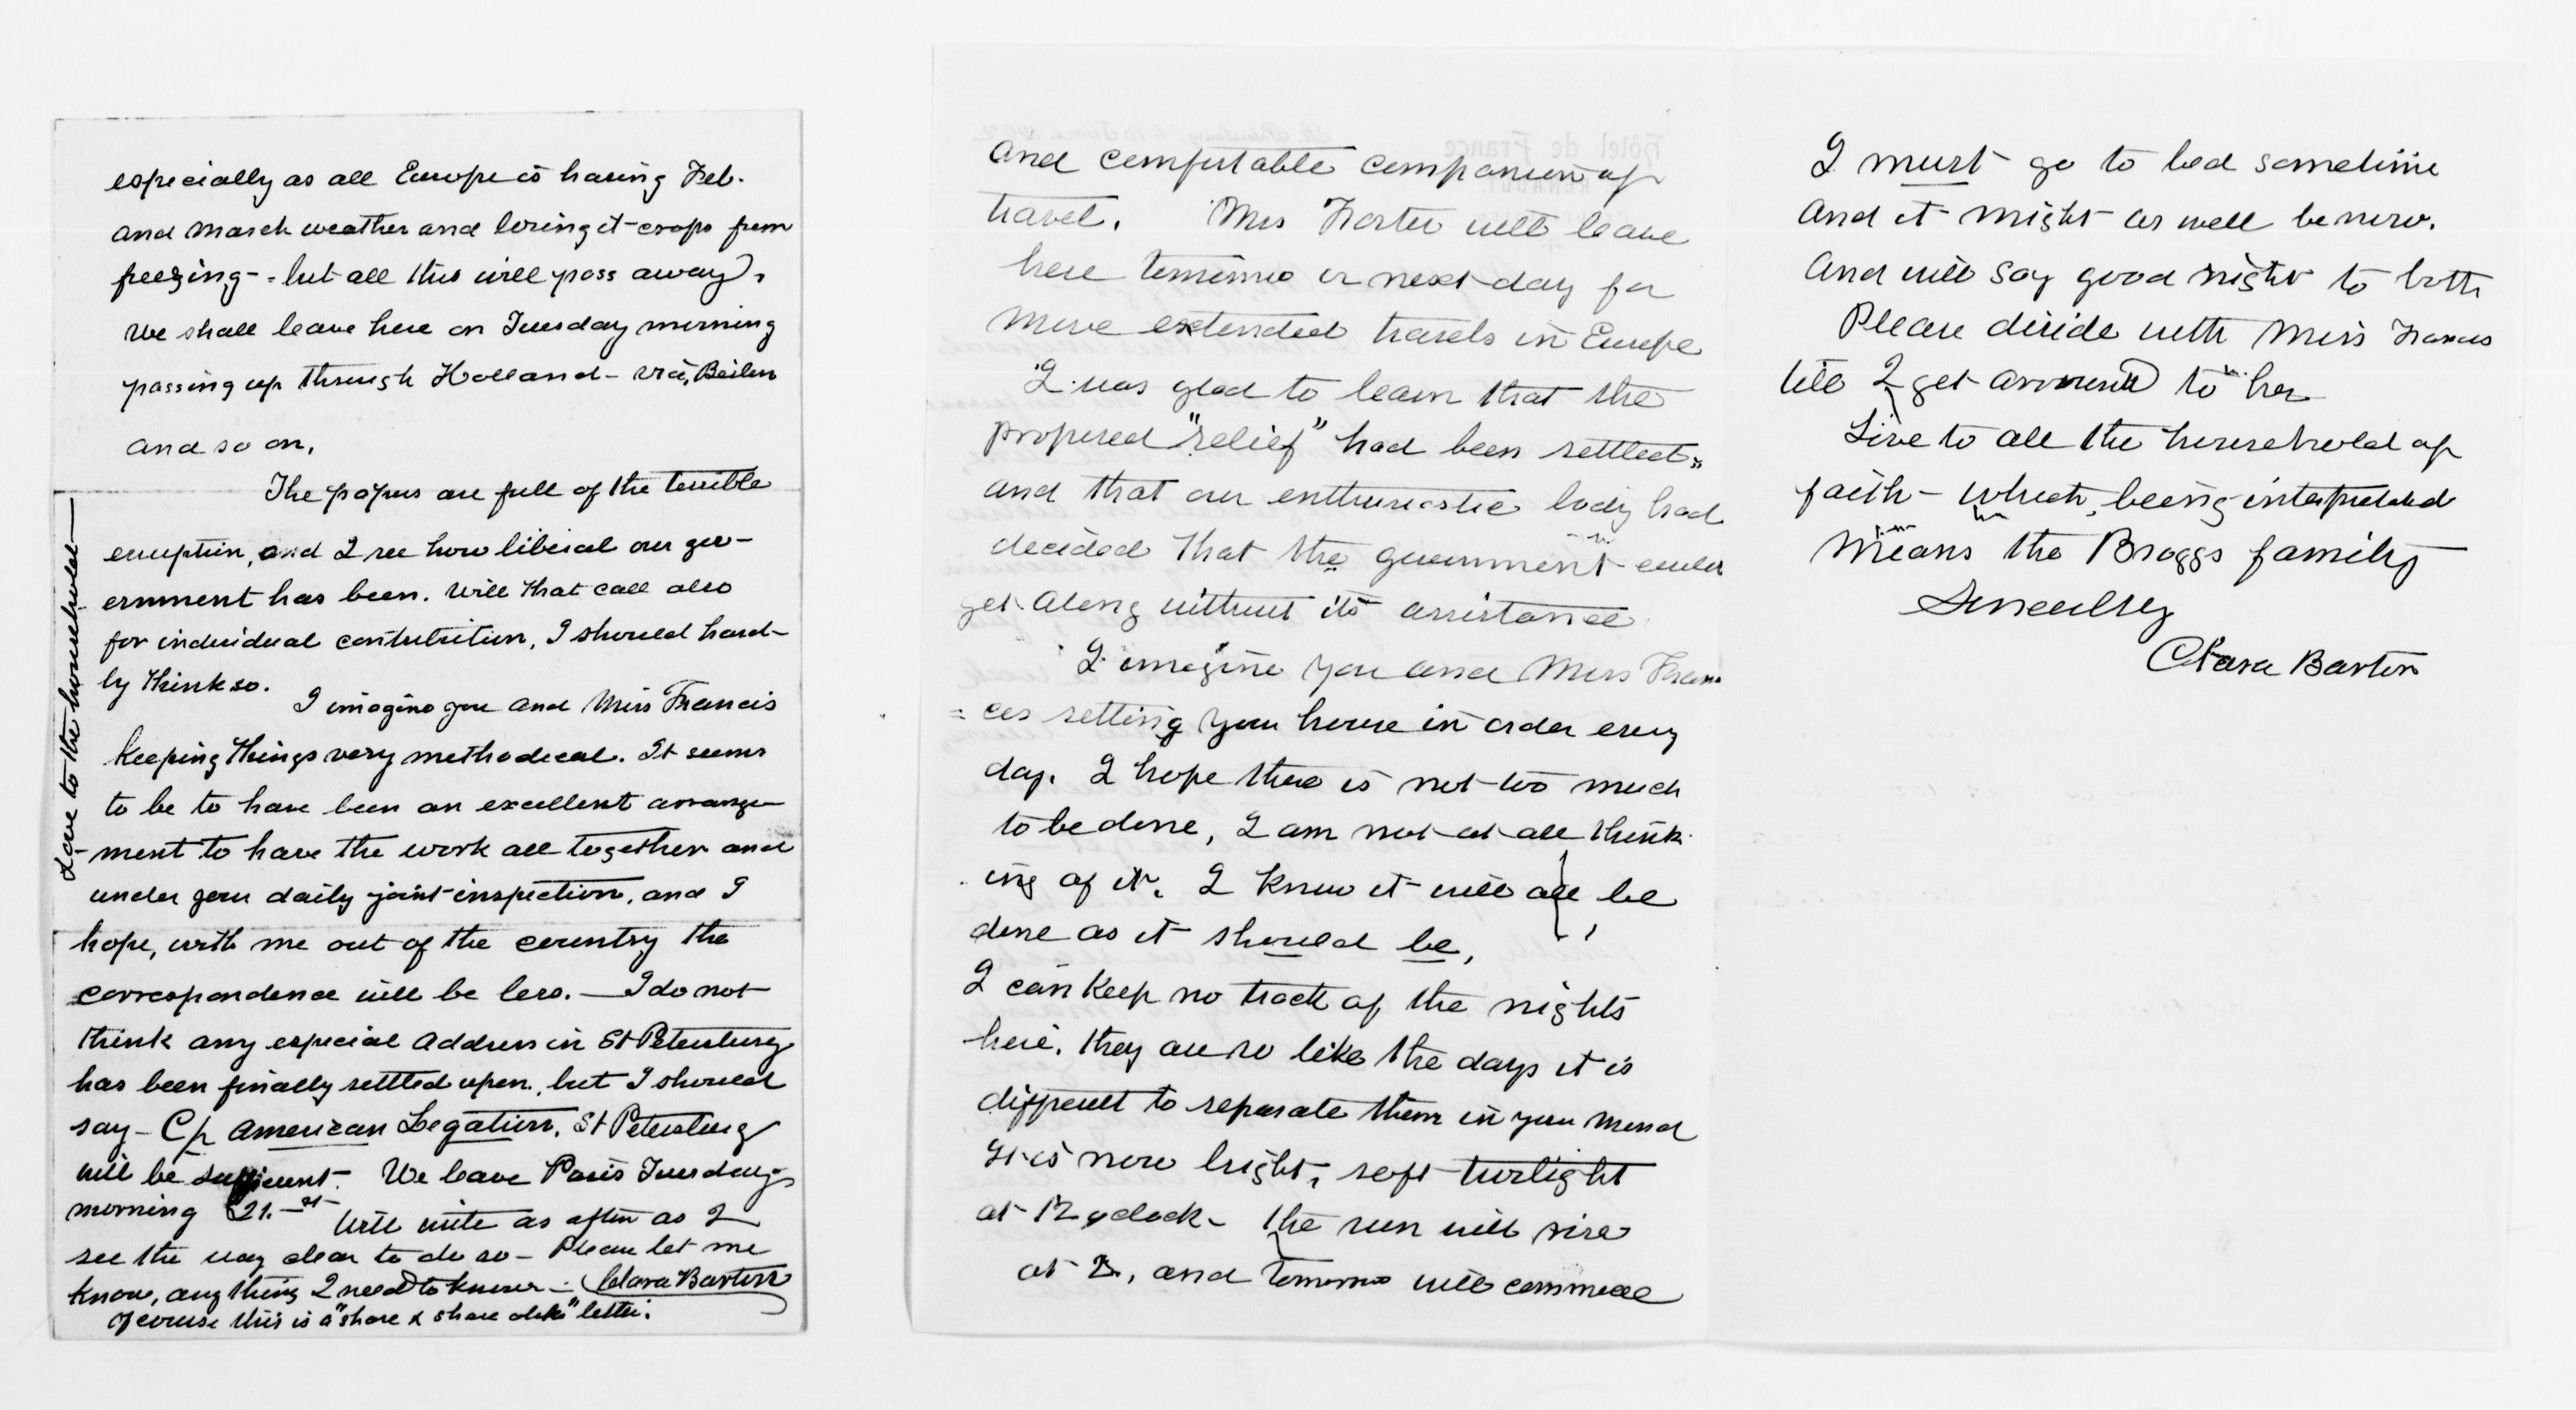 especially as all Europe is having Feb.
and March weather and losing it crops from
freezing - - but all this will pass away,
We shall leave here on Tuesday morning
passing up through Holland - via, Beilin
and so on.
The papers are full of the terrible
erruption, and I see how liberal our gov-
ernment has been. Will that call also
for individual contribution, I should hard-
ly think so.
I imagine you and Miss Francis
keeping things very methodical. It seems
to be to have been an excellent arrange-
ment to have the work all together and
under your daily joint inspection, and I
hope, with me out of the country the
correspondence will be less. — I do not
think any especial address in St Petersburg
has been finally settled upon, but I should
say - C/ American Legation, St Petersburg
will be sufficient. We leave Paris Tuesday
morning 21.—st Will write as often as I
see the way clear to do so - Please let me
know, any thing I need to know - Clara Barton
Of course this is a "share & share alike" letter.
Love to the household —
and comfortable companion of
travel. Mrs Foster will leave
here tomorrow or next day for
more extended travels in Europe
I was glad to learn that the
proposed "relief" had been settled"
and that our enthusiastic body had
decided that the government could
get along without its assistance.
I imagine you and Miss Fran-
=ces setting your house in order every
day. I hope there is not too much
to be done, I am not at all think-
ing of it. I know it will all be
done as it should be,
I can keep no track of the nights
here. they are so like the days it is
difficult to separate them in your mind
It is now bright, soft twilight
at 12 oclock - the sun will rise
at 2, and tomorrow will commence
Hôtel de France
I must go to bed sometime
and it might as well be now.
And will say good night to both
Please divide with Miss Frances
till I get around to her
Love to all the household of
faith - which, being interpreted
means the Braggs family
Sincerely
Clara Barton